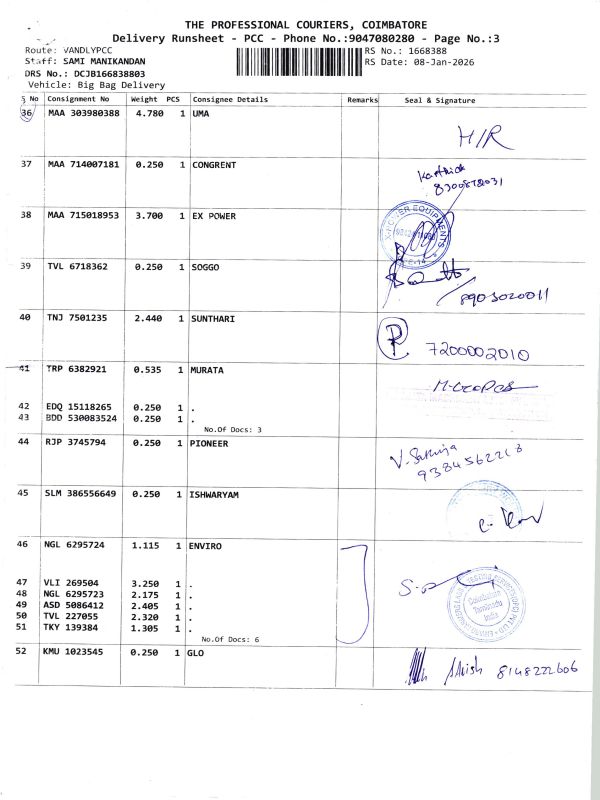 THE PROFESSIONAL COURIERS, COIMBATORE
Delivery Runsheet - PCC - Phone No.:9047080280 - Page No.:3
Route: VANDLYPCC
RS No.: 1668388
Staff: SAMI MANIKANDAN
RS Date: 08-Jan-2026
DRS No.: DCJB166838803
Vehicle: Big Bag Delivery
S No Consignment No Weight PCS Consignee Details Remarks Seal & Signature
36 MAA 303980388 4.780 1 UMA
H/R
37 MAA 714007181 0.250 1 CONGRENT
Karthick
38 MAA 715018953 3.700 1 EX POWER
39 TVL 6718362 0.250 1 SOGGO
8903020011
40 TNJ 7501235 2.440 1 SUNTHARI
P 7200002010
41 TRP 6382921 0.535 1 MURATA
42 EDQ 15118265 0.250 1 .
43 BDD 530083524 0.250 1 .
No.Of Docs: 3
44 RJP 3745794 0.250 1 PIONEER
9384562213
45 SLM 386556649 0.250 1 ISHWARYAM
46 NGL 6295724 1.115 1 ENVIRO
47 VLI 269504 3.250 1 .
48 NGL 6295723 2.175 1 .
49 ASD 5086412 2.405 1 .
50 TVL 227055 2.320 1 .
51 TKY 139384 1.305 1 .
Coimbatore
Tamilnadu
India
No.Of Docs: 6
52 KMU 1023545 0.250 1 GLO
8148222606